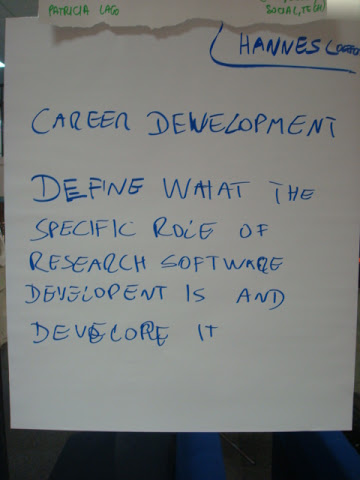 PATRICIA LAGO
SOCIAL,
HANNES
CAREER DEVELOPMENT
DEFINE WHAT THE
SPECIFIC ROLE OF
RESEARCH SOFTWARE
DEVELOPENT IS AND
DEVELOPE IT